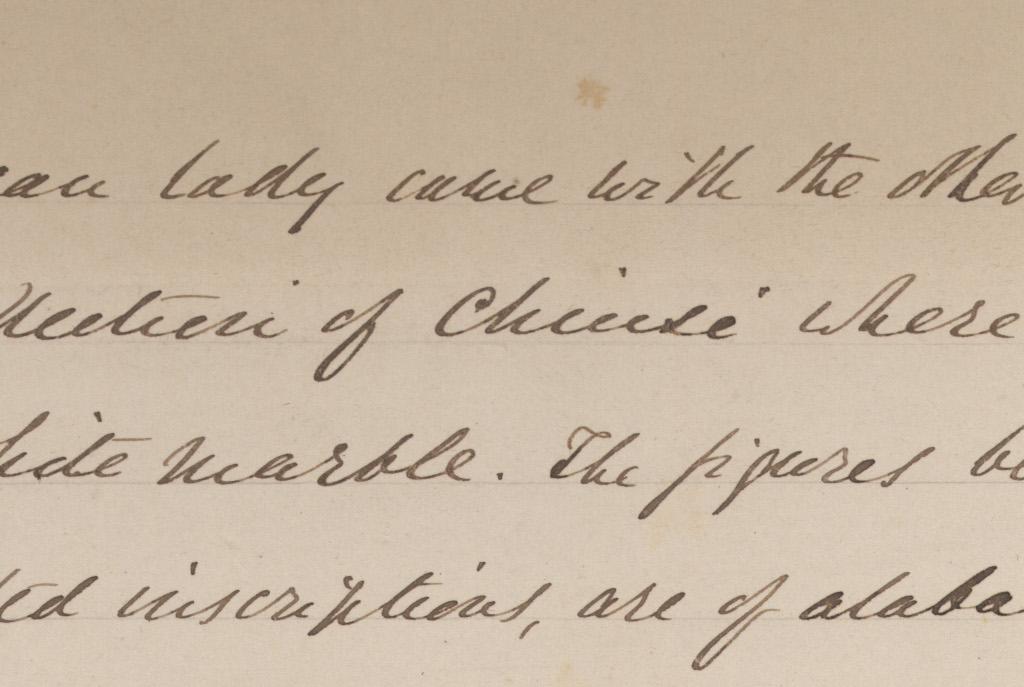 can lady came with the other
llection of Chiusi where
hite marble. The figures b
ted inscriptions, are of alaba